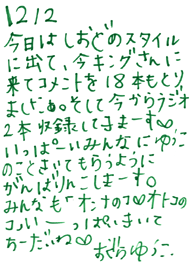 1212
今日はしおどめスタイル
に出て、今キングさんに
来てコメントを18本もとり
ましたぁ。そして今からラジオ
2本収録してきまーす♡
いっぱーいみんなにゆうこ
のこときいてもらうように
がんばりんこしまーす。
みんなも「オンナのコ♡オトコの
コ」いーっぱいきいて
ちーだいね♡
おぐらゆうこ.